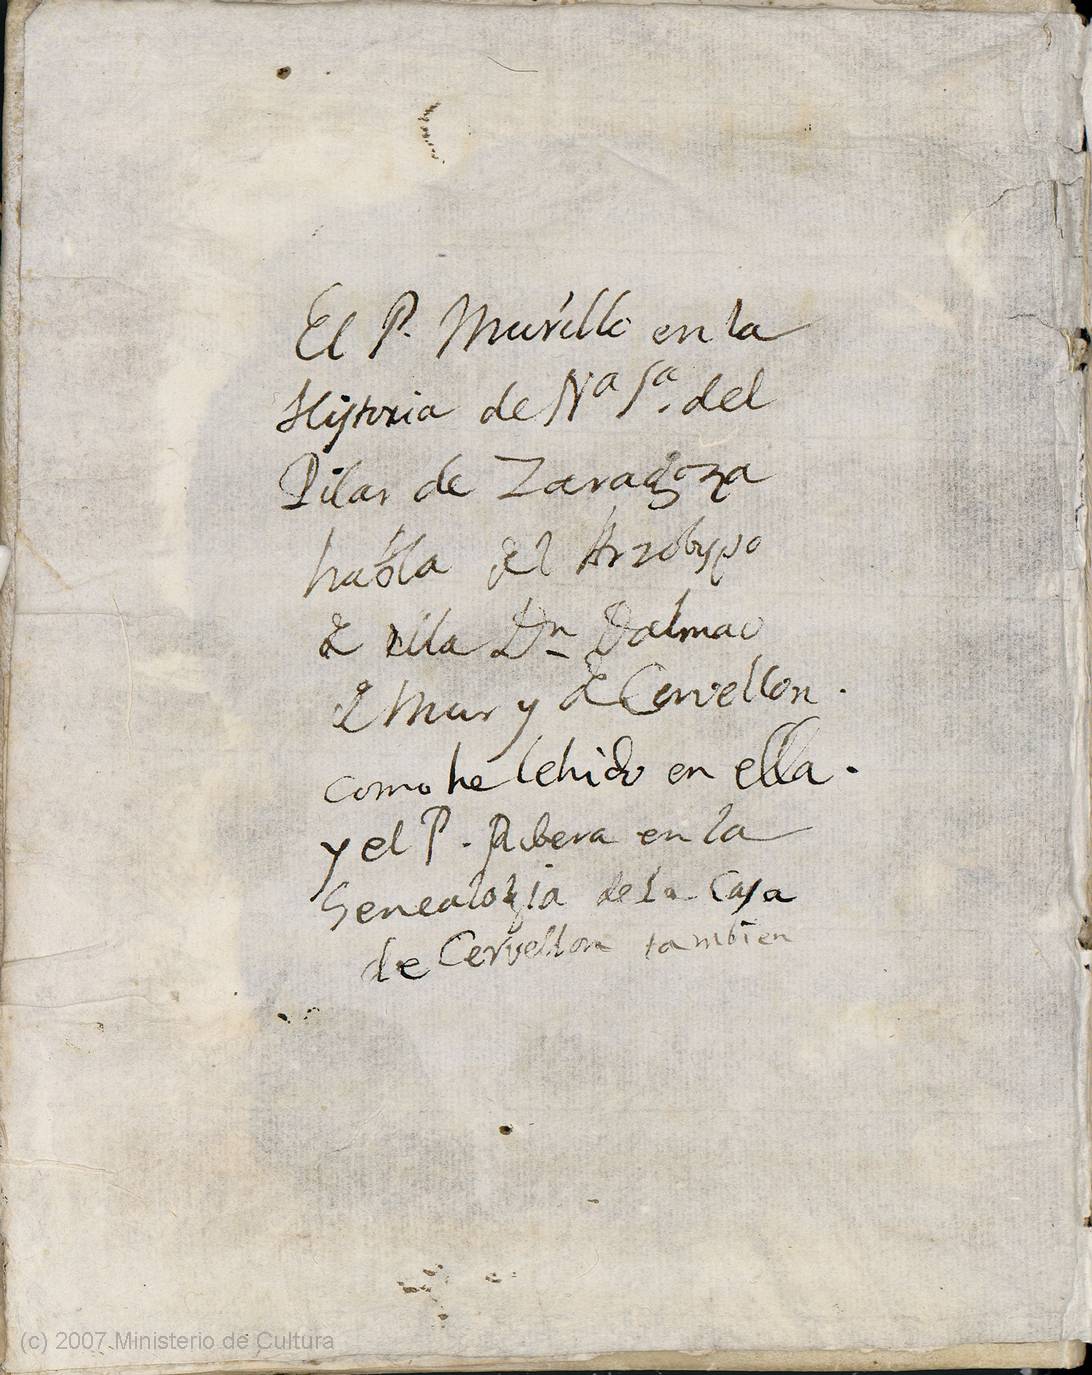 El P. Murillo en la
Historia de Nª Sª. del
Pilar de Zaragoza
habla del Arzobispo
de ella Dn Dalmao
de Mur y de Cervellon.
como he lehido en ella.
y el P. Ribera en la
Genealogia de la Casa
de Cervellon tambien
(c) 2007 Ministerio de Cultura